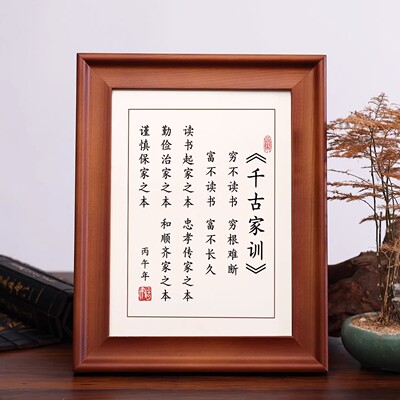 《千古家训》
穷不读书 穷根难断
富不读书 富不长久
读书起家之本 忠孝传家之本
勤俭治家之本 和顺齐家之本
谨慎保家之本
丙午年